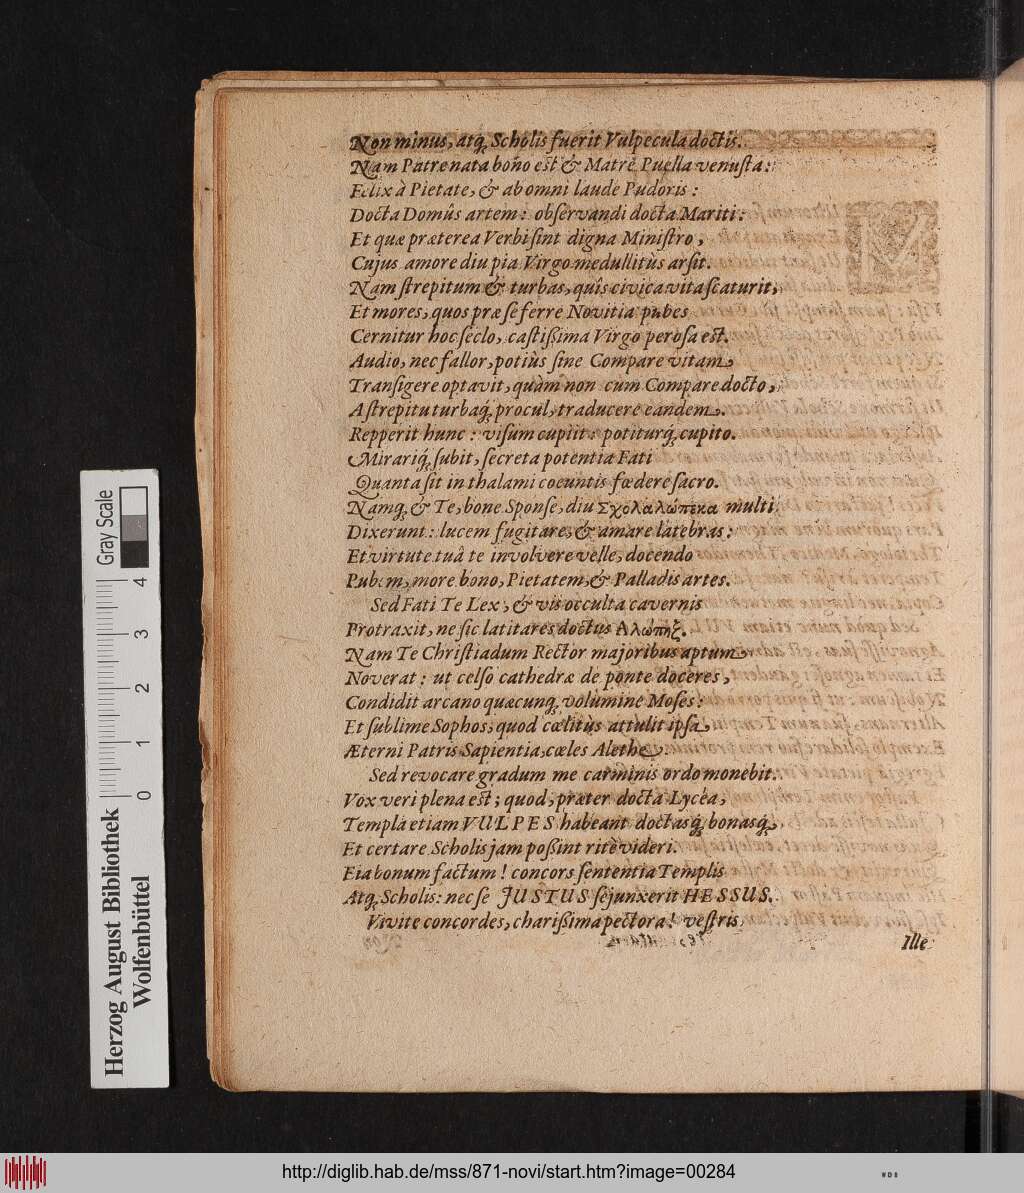 Non minus, atq; Scholis fuerit Vulpecula doctis.
Nam Patre nata bono est & Matre Puella venusta:
Felix à Pietate, & ab omni laude Pudoris:
Docta Domûs artem: observandi docta Mariti:
Et quæ præterea Verbi sint digna Ministro,
Cujus amore diu pia Virgo medullitùs arsit.
Nam strepitum & turbas, quîs civica vita scaturit,
Et mores, quos præ se ferre Novitia pubes
Cernitur hoc seclo, castißima Virgo perosa est.
Audio, nec fallor, potiùs sine Compare vitam
Transigere optavit, quàm non cum Compare docto,
A strepitu turbaq́; procul, traducere eandem.
Repperit hunc: visum cupiit: potiturq́; cupito.
Mirariq́; subit, secreta potentia Fati
Quanta sit in thalami coeuntis fœdere sacro.
Namq; & Te, bone Sponse, diu Σχολαλώπεκα multi
Dixerunt: lucem fugitare, & amare latebras:
Et virtute tuâ te involvere velle, docendo
Pubem, more bono, Pietatem, & Palladis artes.
Sed Fati Te Lex, & vis occulta cavernis
Protraxit, ne sic latitares doctus Αλώπηξ.
Nam Te Christiadum Rector majoribus aptum
Noverat: ut celso cathedræ de ponte doceres,
Condidit arcano quæcunq; volumine Moses:
Et sublime Sophos, quod cœlitùs attulit ipsa
Æterni Patris Sapientia, cœles Alethe.
Sed revocare gradum me carminis ordo monebit.
Vox veri plena est; quod, præter docta Lycéa,
Templa etiam VULPES habeant doctasq́; bonasq́;,
Et certare Scholis jam poßint ritè videri.
Eia bonum factum! concors sententia Templis
Atq; Scholis: nec se JUSTUS sejunxerit HESSUS.
Vivite concordes, charißima pectora! vestris
Ille
Herzog August Bibliothek
Wolfenbüttel
Gray Scale
0 1 2 3 4
http://diglib.hab.de/mss/871-novi/start.htm?image=00284